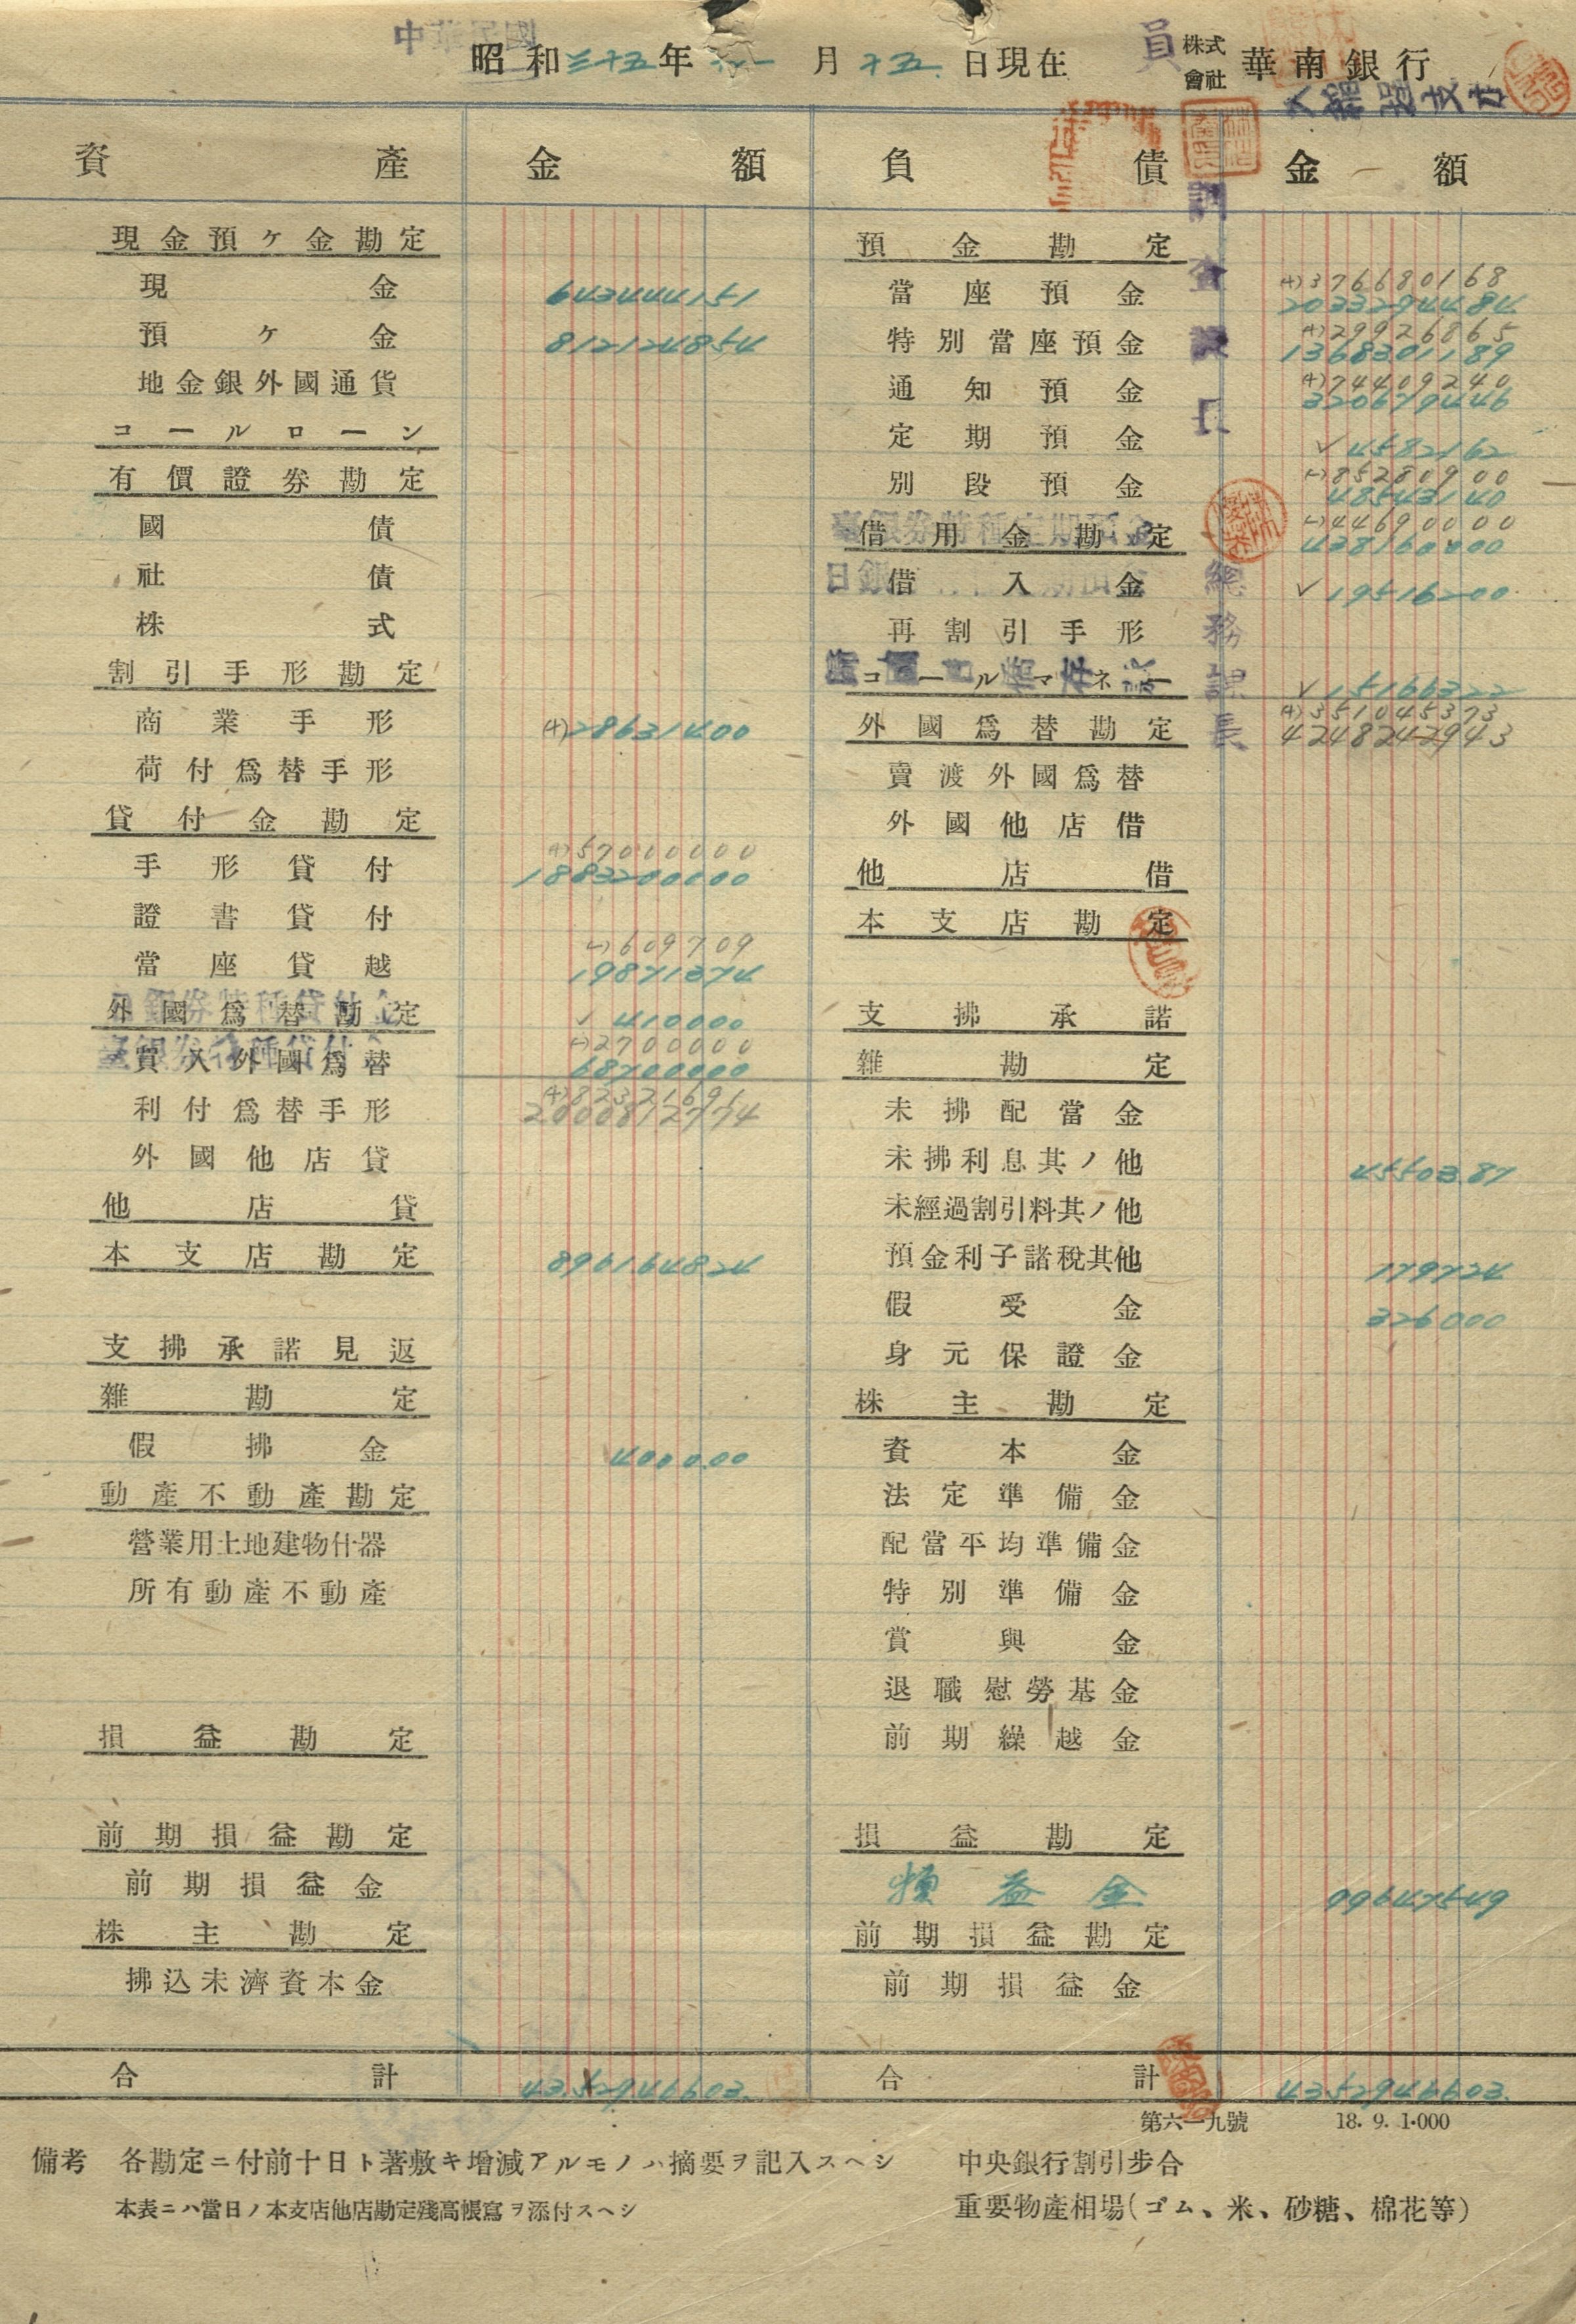 中華民國
昭和三十五年 月十五日現在 株式會社 華南銀行
大稻埕支店
資產 金額 負債 金額
現金預ケ金勘定
現金 643444151
預ケ金 812124854
地金銀外國通貨
コールローン
有價證券勘定
國債
社債
株式
割引手形勘定
商業手形 (+)28631400
荷付爲替手形
貸付金勘定
手形貸付 (+)57000000
1883200000
證書貸付
當座貸越 (-)609709
19871374
外國爲替勘定 ✓ 410000
買入外國爲替 (-)2700000
68700000
利付爲替手形 (+)82321691
2000812774
外國他店貸
他店貸
本支店勘定 896164824
支拂承諾見返
雜勘定
假拂金 400000
動產不動產勘定
營業用土地建物什器
所有動產不動產
損益勘定
前期損益勘定
前期損益金
株主勘定
拂込未濟資本金
合計 4352946603
預金勘定
當座預金 (+)376680168
2033294484
特別當座預金 (+)29926865
1368301189
通知預金 (+)74409240
320679446
定期預金 ✓ 4582162
別段預金 (-)85280900
48543140
臺銀券特種定期預金
借用金勘定 (-)44690000
438160000
借入金 ✓ 19516200
再割引手形
コールマネー ✓ 15166322
外國爲替勘定 (+)351045373
4248242943
賣渡外國爲替
外國他店借
他店借
本支店勘定
支拂承諾
雜勘定
未拂配當金
未拂利息其ノ他 4550387
未經過割引料其ノ他
預金利子諸稅其他 179724
假受金 326000
身元保證金
株主勘定
資本金
法定準備金
配當平均準備金
特別準備金
賞與金
退職慰勞基金
前期繰越金
損益勘定
損益金 99647549
前期損益勘定
前期損益金
合計 4352946603
總務課長
第六一九號 18.9.1·000
備考 各勘定ニ付前十日ト著敷キ增減アルモノハ摘要ヲ記入スヘシ
本表ニハ當日ノ本支店他店勘定殘高帳寫ヲ添付スヘシ
中央銀行割引步合
重要物產相場(ゴム、米、砂糖、棉花等)